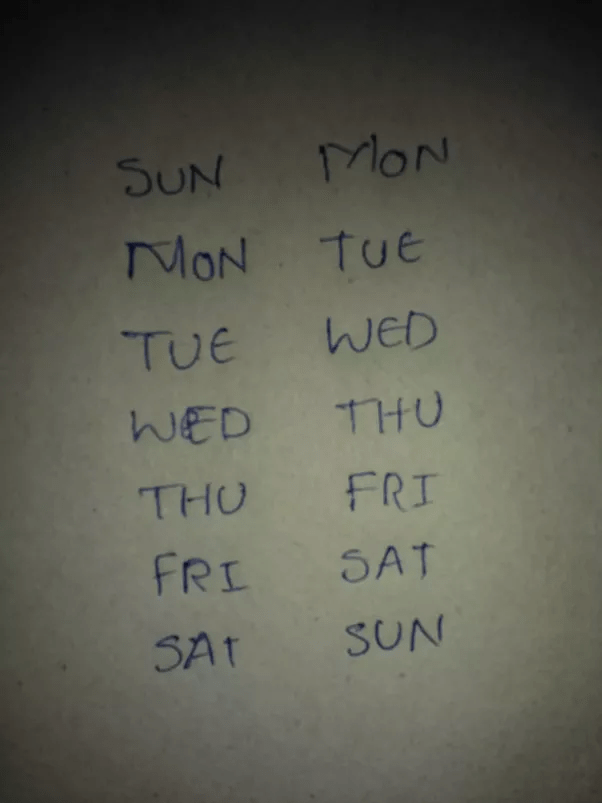 SUN MON
MON TUE
TUE WED
WED THU
THU FRI
FRI SAT
SAT SUN